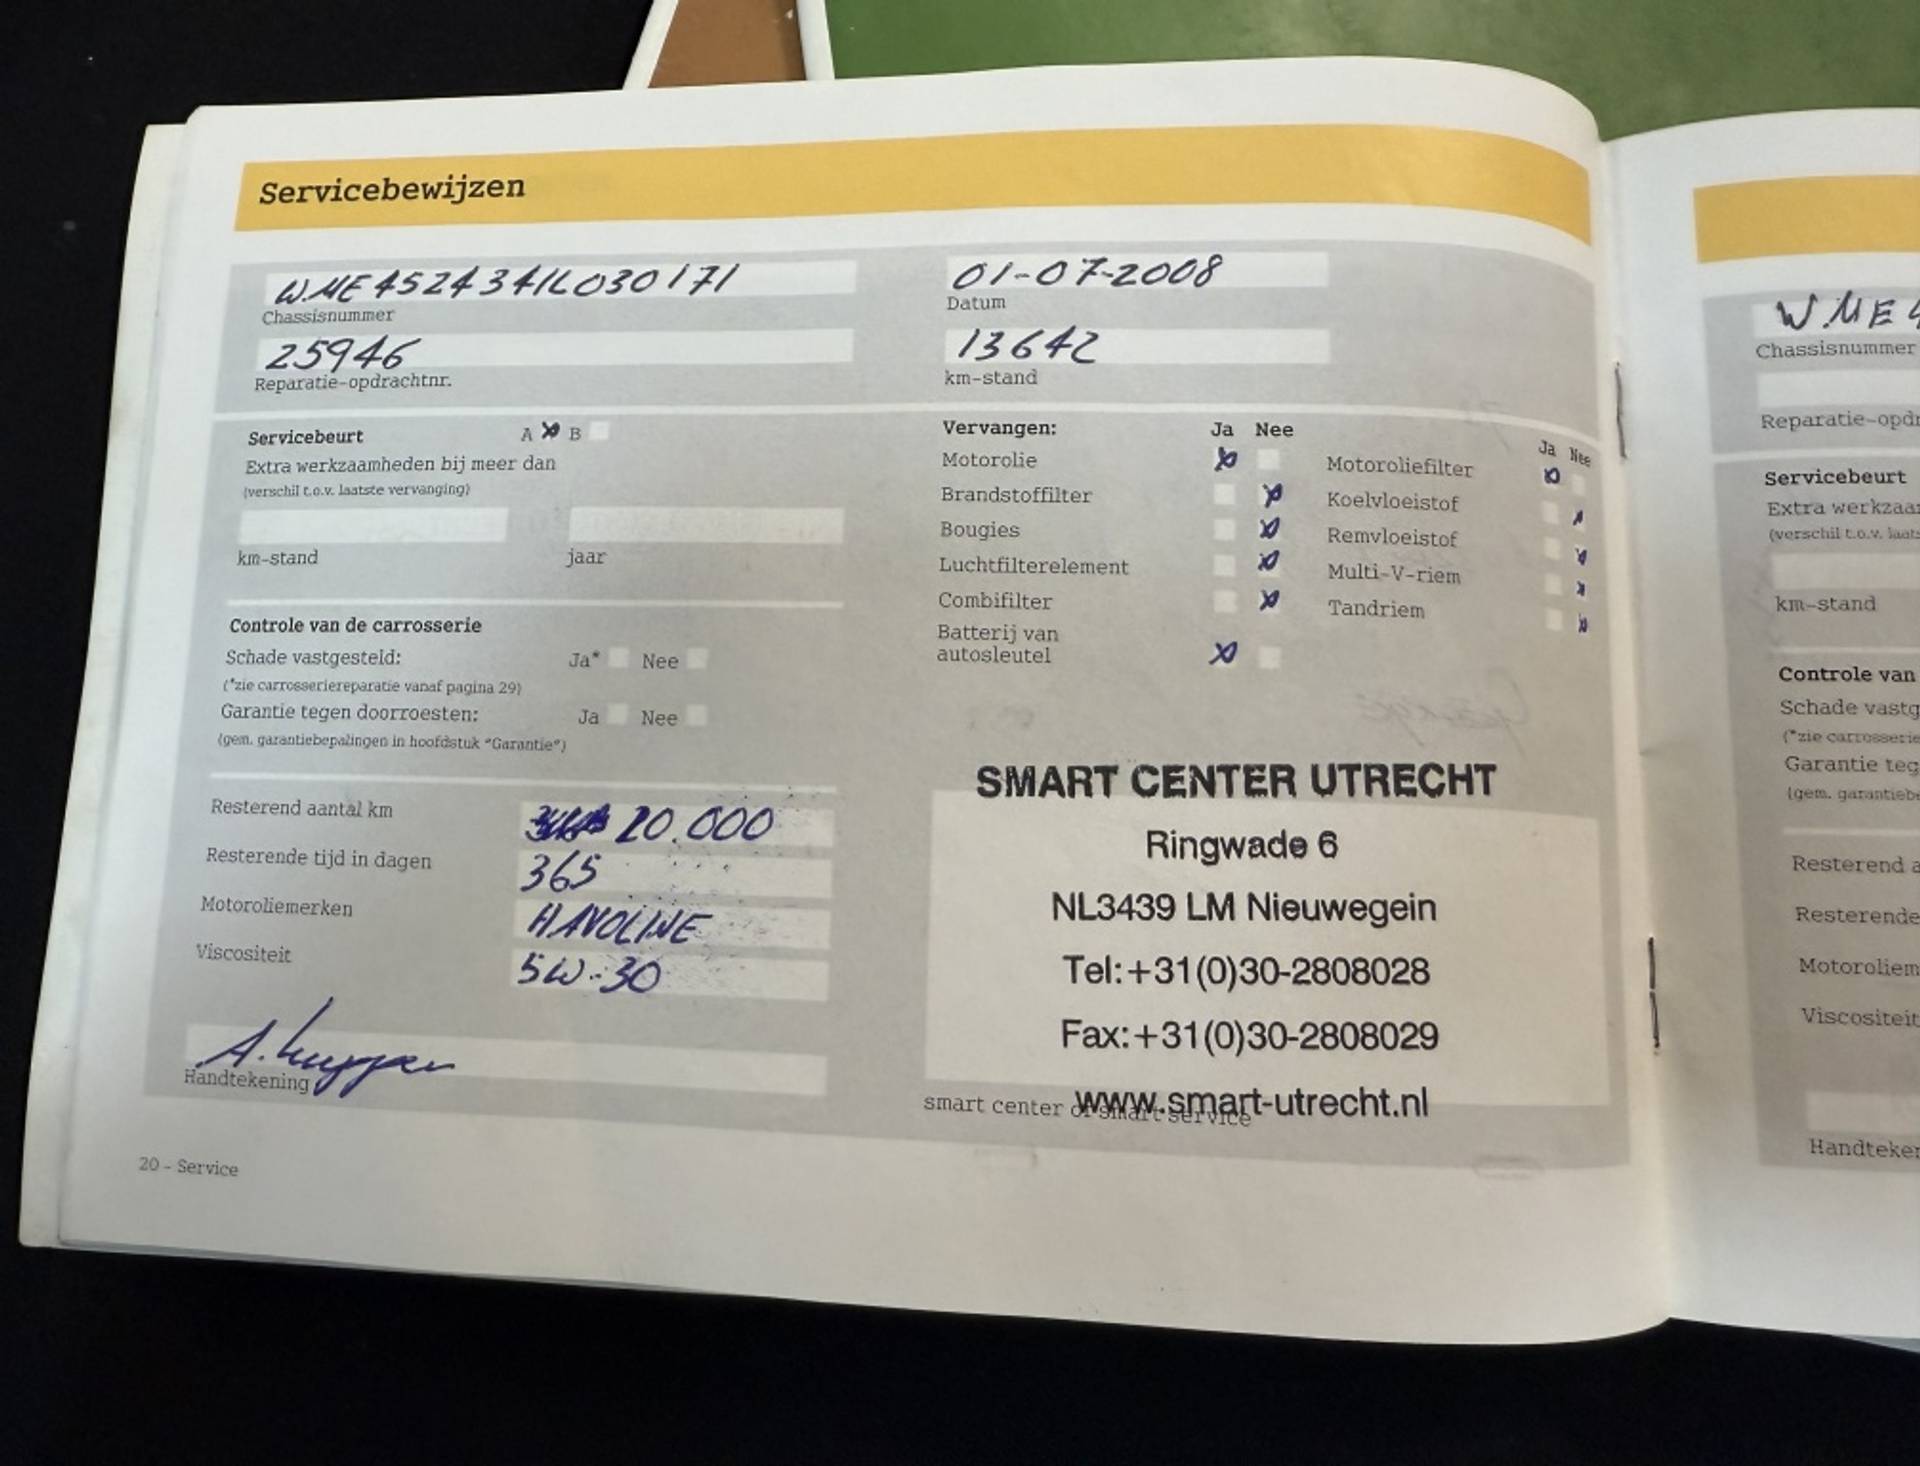 Servicebewijzen
WME4524341L030171
Chassisnummer
01-07-2008
Datum
25946
Reparatie-opdrachtnr.
13642
km-stand
Servicebeurt A B
Extra werkzaamheden bij meer dan
(verschil t.o.v. laatste vervanging)
km-stand jaar
Controle van de carrosserie
Schade vastgesteld: Ja* Nee
(*zie carrosseriereparatie vanaf pagina 29)
Garantie tegen doorroesten: Ja Nee
(gem. garantiebepalingen in hoofdstuk "Garantie")
Resterend aantal km 20.000
Resterende tijd in dagen 365
Motoroliemerken HAVOLINE
Viscositeit 5W-30
Handtekening
Vervangen: Ja Nee
Motorolie
Brandstoffilter
Bougies
Luchtfilterelement
Combifilter
Batterij van
autosleutel
Ja Nee
Motoroliefilter
Koelvloeistof
Remvloeistof
Multi-V-riem
Tandriem
SMART CENTER UTRECHT
Ringwade 6
NL3439 LM Nieuwegein
Tel:+31(0)30-2808028
Fax:+31(0)30-2808029
www.smart-utrecht.nl
smart center of smart service
20 - Service
WME4
Chassisnummer
Reparatie-opdr
Servicebeurt
Extra werkzaa
(verschil t.o.v. laats
km-stand
Controle van
Schade vastg
(*zie carrosserie
Garantie teg
(gem. garantiebe
Resterend a
Resterende
Motoroliem
Viscositeit
Handteken